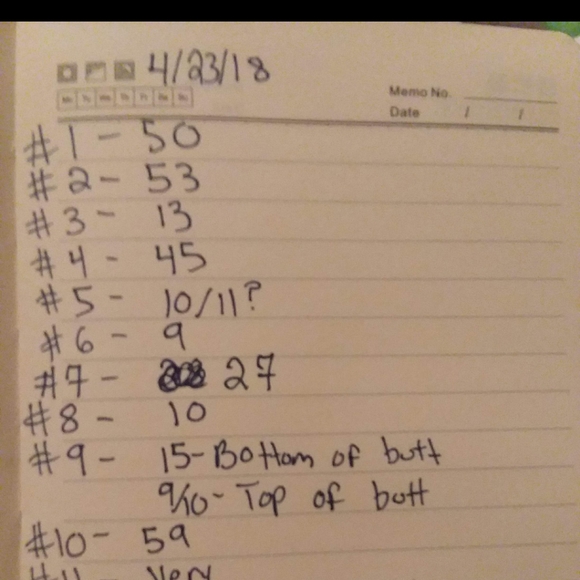 4/23/18
Memo No.
Date / /
#1 - 50
#2 - 53
#3 - 13
#4 - 45
#5 - 10/11?
#6 - 9
#7 - 27
#8 - 10
#9 - 15-Bottom of butt
9/10 - Top of butt
#10 - 59
#11 - Very